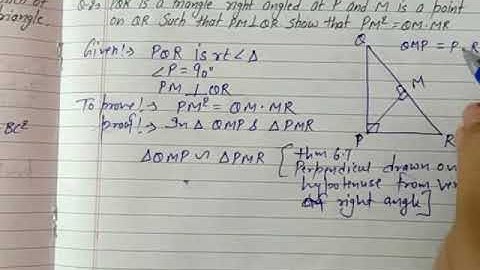 triangle.
Q.2> PQR is a triangle right angled at P and M is a point
on QR Such that PM⊥QR show that PM² = QM·MR
Given!→ PQR is rt∠Δ
∠P = 90°
PM ⊥ QR
To prove!→ PM² = QM·MR
proof!→ In Δ QMP & Δ PMR
ΔQMP ∽ ΔPMR [thm 6.7
Perpendical drawn on
hypotenuse from ver
of right angle]
BC²
Q
QMP = P
R
M
P
R